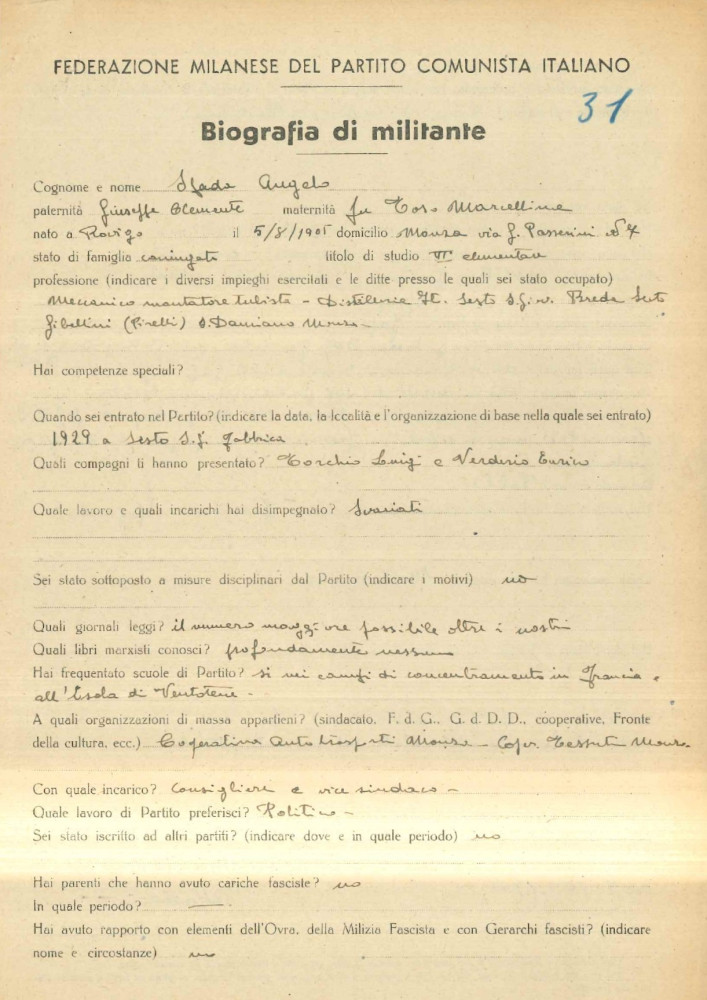 FEDERAZIONE MILANESE DEL PARTITO COMUNISTA ITALIANO
31
Biografia di militante
Cognome e nome Spada Angelo
paternità Giuseppe Clemente maternità fu Toso Marcellina
nato a Rovigo il 5/8/1905 domicilio Monza via G. Passerini N° 7
stato di famiglia coniugati titolo di studio VI elementare
professione (indicare i diversi impieghi esercitati e le ditte presso le quali sei stato occupato)
Meccanico montatore tubista - Distillerie It. Sesto S. Giov. Breda Sesto
Gibellini (Pirelli) S. Damiano Monza -
Hai competenze speciali?
Quando sei entrato nel Partito? (indicare la data, la località e l'organizzazione di base nella quale sei entrato)
1929 a Sesto S. G. fabbrica
Quali compagni ti hanno presentato? Torchio Luigi e Verderio Enrico
Quale lavoro e quali incarichi hai disimpegnato? Svariati
Sei stato sottoposto a misure disciplinari dal Partito (indicare i motivi) no
Quali giornali leggi? il numero maggiore possibile oltre i nostri
Quali libri marxisti conosci? profondamente nessuno
Hai frequentato scuole di Partito? si nei campi di concentramento in Francia e
all'Isola di Ventotene -
A quali organizzazioni di massa appartieni? (sindacato, F. d. G., G. d. D. D., cooperative, Fronte
della cultura, ecc.) Coperativa Auto trasporti Monza - Coper. Tessuti Monza.
Con quale incarico? Consigliere e vice sindaco -
Quale lavoro di Partito preferisci? Politico -
Sei stato iscritto ad altri partiti? (indicare dove e in quale periodo) no
Hai parenti che hanno avuto cariche fasciste? no
In quale periodo? —
Hai avuto rapporto con elementi dell'Ovra, della Milizia Fascista e con Gerarchi fascisti? (indicare
nome e circostanze) no